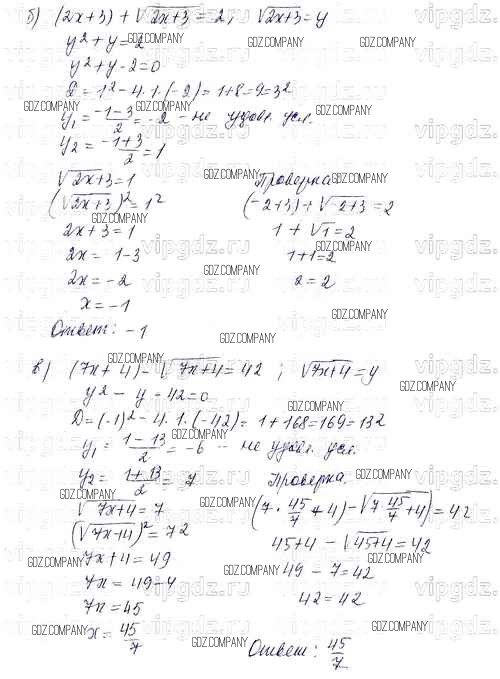 б) (2x+3) + √(2x+3) = 2; √(2x+3) = y
y² + y = 2
y² + y - 2 = 0
D = 1² - 4·1·(-2) = 1+8 = 9 = 3²
y₁ = (-1-3)/2 = -2 - не удовл. усл.
y₂ = (-1+3)/2 = 1
√(2x+3) = 1
(√(2x+3))² = 1²
2x+3 = 1
2x = 1-3
2x = -2
x = -1
Проверка
(-2+3) + √(-2+3) = 2
1 + √1 = 2
1+1 = 2
2 = 2
Ответ: -1
в) (7x+4) - √(7x+4) = 42; √(7x+4) = y
y² - y - 42 = 0
D = (-1)² - 4·1·(-42) = 1+168 = 169 = 13²
y₁ = (1-13)/2 = -6 - не удовл. усл.
y₂ = (1+13)/2 = 7
√(7x+4) = 7
(√(7x+4))² = 7²
7x+4 = 49
7x = 49-4
7x = 45
x = 45/7
Проверка.
(7·45/7+4) - √(7·45/7+4) = 42
45+4 - √(45+4) = 42
49 - 7 = 42
42 = 42
Ответ: 45/7
GDZ.COMPANY
vipgdz.ru